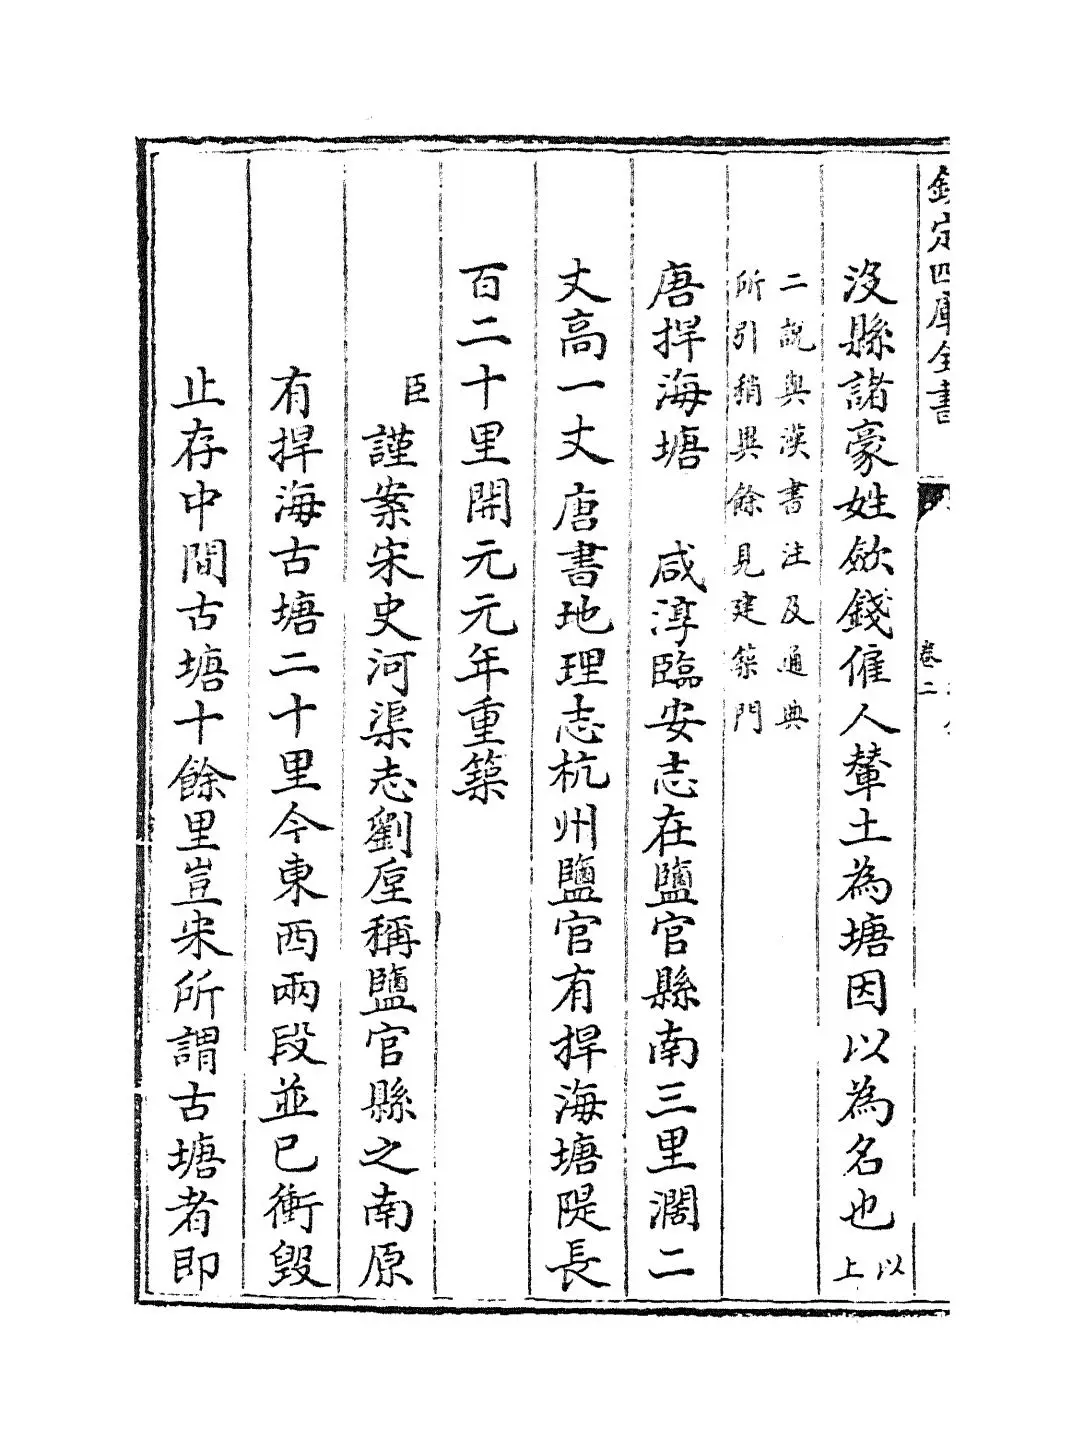 欽定四庫全書
卷二
沒縣諸豪姓斂錢僱人輦土為塘因以為名也以上
二說與漢書注及通典
所引稍異餘見建築門
唐捍海塘　咸淳臨安志在鹽官縣南三里濶二
丈高一丈唐書地理志杭州鹽官有捍海塘隄長
百二十里開元元年重築
臣謹案宋史河渠志劉垕稱鹽官縣之南原
有捍海古塘二十里今東西兩段並已衝毀
止存中間古塘十餘里豈宋所謂古塘者即